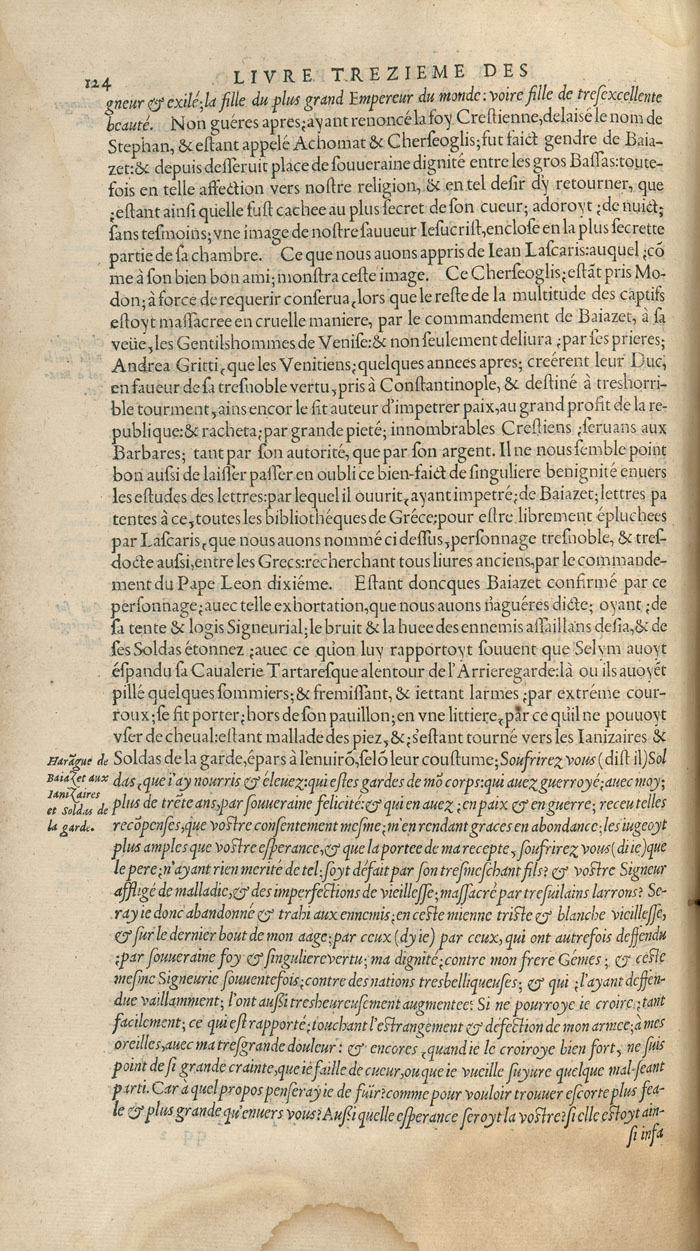 124
LIVRE TREZIEME DES
gneur & exilé;la fille du plus grand Empereur du monde: voire fille de treſexcellente
beauté. Non guéres apres;ayant renoncé la foy Creſtienne,delaiſé le nom de
Stephan, & eſtant appelé Achomat & Cherſeoglis;fut faict gendre de Baia-
zet:& depuis deſſeruit place de ſouueraine dignité entre les gros Baſſas:toute-
fois en telle affection vers noſtre religion, & en tel deſir d'y retourner, que
;eſtant ainſi quelle fuſt cachee au plus ſecret de ſon cueur; adoroyt ;de nuict;
ſans teſmoins; vne image de noſtre ſauueur Ieſucriſt,encloſe en la plus ſecrette
partie de ſa chambre. Ce que nous auons appris de Iean Laſcaris:auquel ;cō
me à ſon bien bon ami; monſtra ceſte image. Ce Cherſeoglis;eſtāt pris Mo-
don; à force de requerir conſerua,lors que le reſte de la multitude des captifs
eſtoyt maſſacree en cruelle maniere, par le commandement de Baiazet, à ſa
veüe,les Gentilshommes de Veniſe:& non ſeulement deliura ;par ſes prieres;
Andrea Gritti,que les Venitiens;quelques annees apres; creérent leur Duc,
en faueur de ſa treſnoble vertu,pris à Conſtantinople, & deſtiné à treshorri-
ble tourment,ains encor le fit auteur d'impetrer paix,au grand profit de la re-
publique:& racheta;par grande pieté; innombrables Creſtiens ;ſeruans aux
Barbares; tant par ſon autorité, que par ſon argent. Il ne nous ſemble point
bon auſſi de laiſſer paſſer en oubli ce bien-faict de ſinguliere benignité enuers
les eſtudes des lettres:par lequel il ouurit,ayant impetré;de Baiazet;lettres pa
tentes à ce,toutes les bibliothéques de Gréce:pour eſtre librement épluchees
par Laſcaris,que nous auons nommé ci deſſus,perſonnage treſnoble, & treſ-
docte auſſi,entre les Grecs:recherchant tous liures anciens,par le commande-
ment du Pape Leon dixiéme. Eſtant doncques Baiazet confirmé par ce
perſonnage;auec telle exhortation,que nous auons naguéres dicte; oyant ;de
ſa tente & logis Signeurial;le bruit & la huee des ennemis aſſaillans deſia,& de
ſes Soldas étonnez ;auec ce qu'on luy rapportoyt ſouuent que Selym auoyt
éſpandu ſa Caualerie Tartareſque alentour de l'Arrieregarde:là ou ils auoyēt
pillé quelques ſommiers;& fremiſſant, & iettant larmes ;par extréme cour-
roux;ſe fit porter;hors de ſon pauillon;en vne littiere,par ce qu'il ne pouuoyt
vſer de cheual:eſtant mallade des piez, &;s'eſtant tourné vers les Ianizaires &
Soldas de la garde,épars à l'enuirō,ſelō leur couſtume;Soufrirez vous (diſt il)Sol
Harāgue de
Baiazet aux
Ianizaires
et Soldas de
la garde.
das,que i'ay nourris & éleuez:qui eſtes gardes de mō corps:qui auez guerroyé;auec moy;
plus de trēte ans,par ſouueraine felicité:& qui en auez ;en paix & en guerre; receu telles
recōpenſes,que voſtre conſentement meſme;m'en rendant graces en abondance;les iugeoyt
plus amples que voſtre eſperance,& que la portee de ma recepte, ſoufrirez vous (di ie)que
le pere;n'ayant rien merité de tel;ſoyt défait par ſon treſmeſchant fils? & voſtre Signeur
affligé de malladie,& des imperfections de vieilleſſe;maſſacré par treſuilains larrons? Se-
ray ie donc abandonné & trahi aux ennemis;en ceſte mienne triſte & blanche vieilleſſe,
& ſur le dernier bout de mon aage;par ceux (dy ie) par ceux, qui ont autrefois deffendu
;par ſouueraine foy & ſinguliere vertu; ma dignité;contre mon frere Gémes; & ceſte
meſme Signeurie ſouuentefois;contre des nations tresbelliqueuſes; & qui ;l'ayant deffen-
due vaillamment; l'ont auſſi tresheureuſement augmentee? Si ne pourroye ie croire;tant
facilement; ce qui eſt rapporté;touchant l'eſtrangement & defection de mon armee;à mes
oreilles,auec ma treſgrande douleur: & encores ,quand ie le croiroye bien fort, ne ſuis
point de ſi grande crainte,que ie faille de cueur,ou que ie vueille ſuyure quelque mal-ſeant
parti. Car à quel propos penſeray ie de fuïr?comme pour vouloir trouuer eſcorte plus fea-
le & plus grande qu'enuers vous? Auſſi quelle eſperance ſeroyt la voſtre?ſi elle eſtoyt ain-
ſi infa